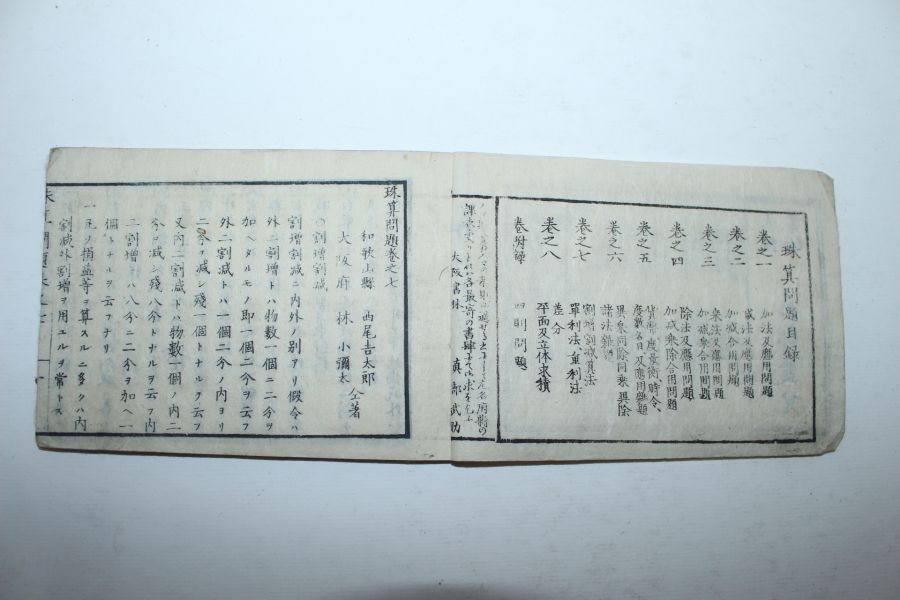 珠算問題目録
巻之一 加法及應用問題
巻之二 減法及應用問題
加減合用問題
巻之三 乗法及應用問題
加減乗合用問題
巻之四 除法及應用問題
加減乗除合用問題
巻之五 貨幣度量衡時令
度數名目及應用雜題
巻之六 異乗同除同乗異除
諸法雜題
巻之七 割増割減算法
單利法重利法
巻之八 差分
平面及立体求積
巻附録 四則問題
各最寄の書肆
大阪書林
珠算問題巻之七
和歌山縣 西尾吉太郎
大阪府 林小彌太 仝著
割増割減
割増割減ニ内外ノ別アリ假令ハ
外二割増トハ物數一個ニ二分ヲ
加ヘタルモノ即一個二分ヲ云フ
外二割減トハ一個二分ノ内ヨリ
二分ヲ減シ殘一個トナルヲ云フ
又内二割減トハ物數一個ノ内二
分ヲ減シ殘八分トナルヲ云フ内
二割増トハ八分ニ二分ヲ加ヘ一
個トナルヲ云フナリ
一元ノ損益等ヲ算スルニ多クハ内
割減外割増ヲ用エルヲ常トス